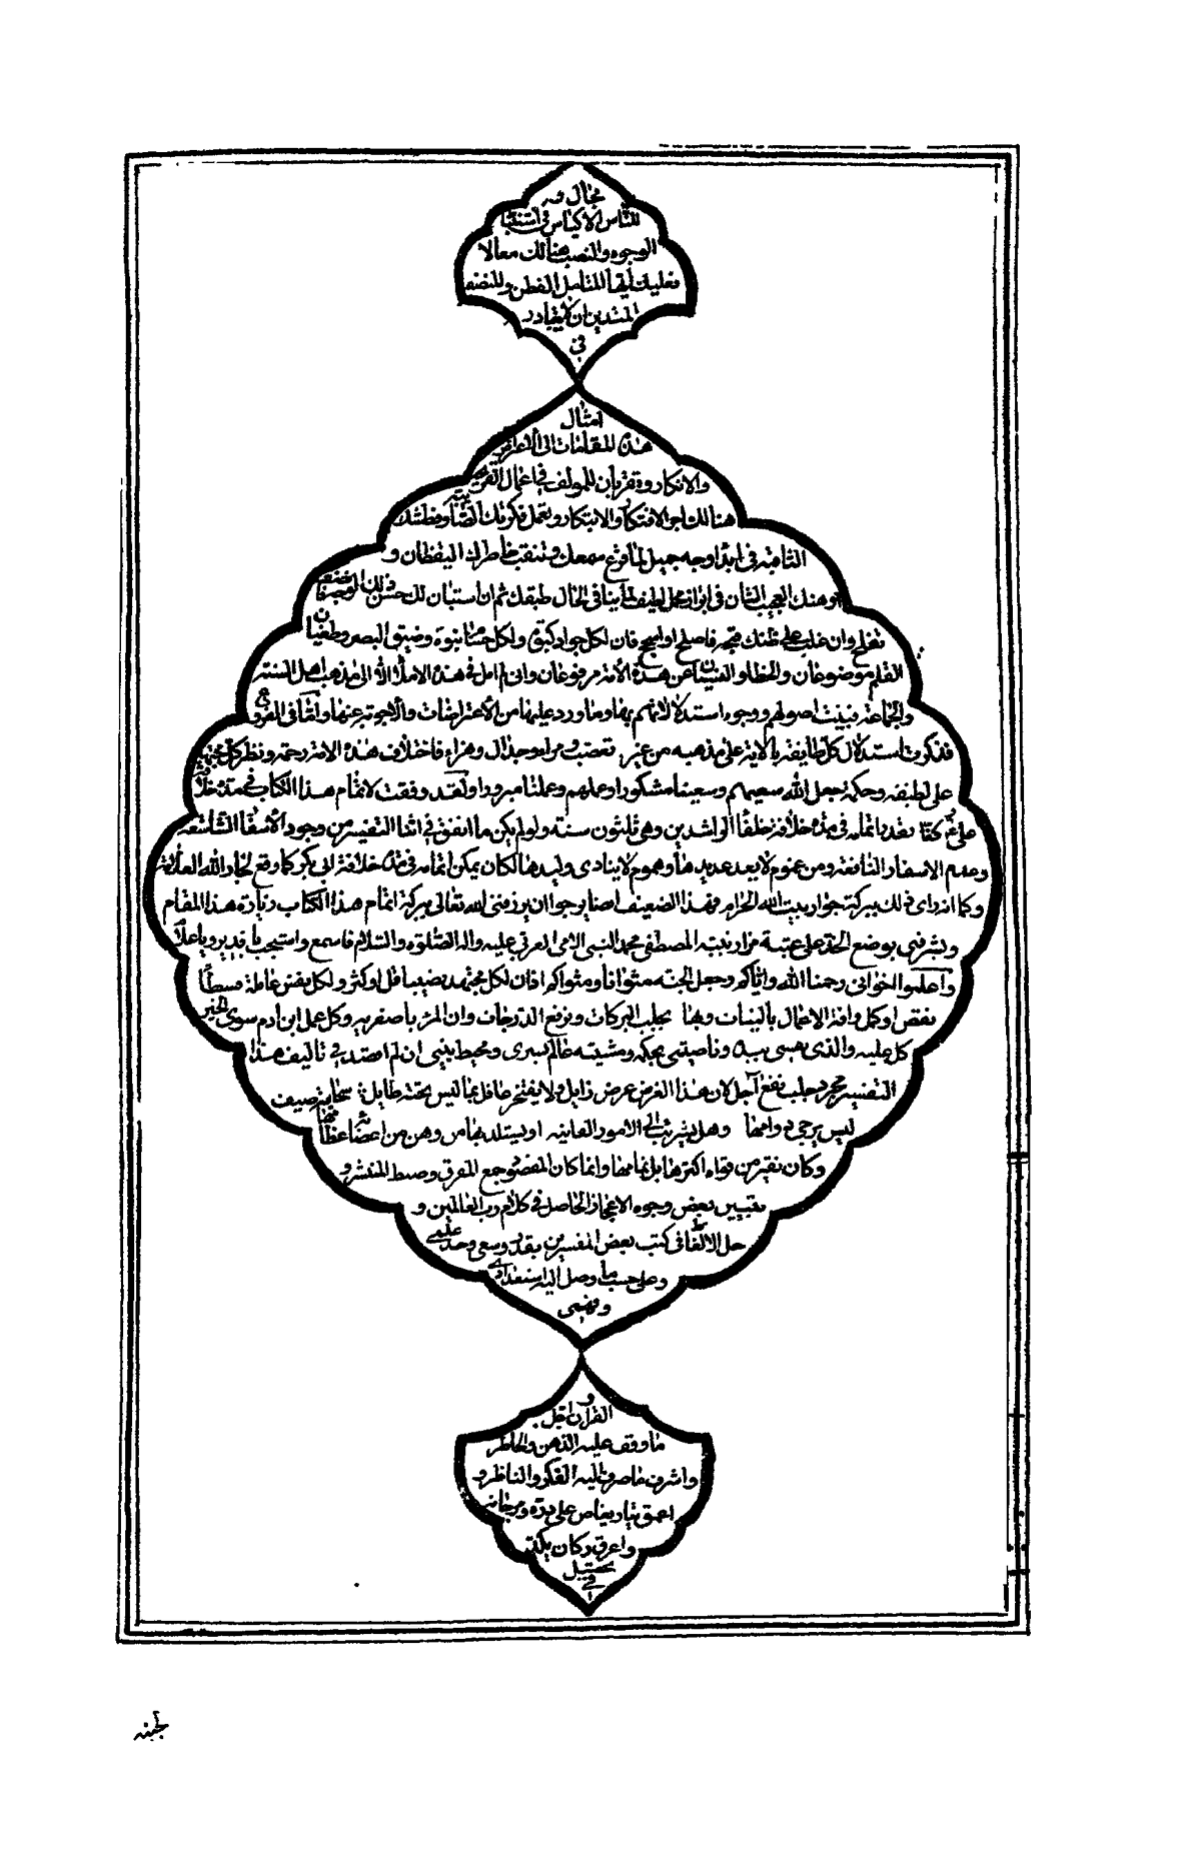 مجال وسـ
للناس الاكياس في استنبا
الوجوه والنصب هنالك معالا
فعليك ايها المتامل الفطن والمنصف
المتدين ان لا تبادر
في
امثال
هذه المقامات الى الاعتراض
والانكار وتقر بان للمؤلف في اعمال القريحة
هنالك اجر الافتكار والابتكار ويعمل فكرتك الصافية وفطنتك
الثاقبة في ابداء وجه جميل لما قرع سمعك وتتعب خاطرك اليقظان و
ذهنك العجيب الشان في ابراز محمل لطيف لما ينافي الحال طبقك ثم ان استبان لك حسن ذلك الوضع
وان غلب على ظنك قبحه فاصلح او اسجح فان لكل جواد كبوة ولكل حسام نبوة وضيق البصر وطغيان
القلم موضوعان والخطأ والنسيان عن هذه الامة مرفوعان واني لم امل في هذا الاملاء الا الى مذهب اهل السنة
والجماعة فبينت اصولهم ووجوه استدلالاتهم بها وما ورد عليها من الاعتراضات والاجوبة عنها واما في الفروع
فذكرت استدلال كل طايفة بالاية على مذهبه من غير تعصب ومراء وجدال وهراء فاختلاف هذه الامة رحمة ونظر كل مجتهد
على لطيفة وحكمة جعل الله سعيهم وسعينا مشكورا وعملهم وعملنا مبرورا ولقد وفقت لاتمام هذا الكتاب في مدة خلافة
علي كنا نقدر اتمامه في مدة خلافة الخلفاء الراشدين وهي ثلثون سنة ولو لم يكن ما اتفق في اثناء التفسير من وجود الاسفار الشاسعة
وعدم الاسفار النافعة ومن غموم لا يعد عديدها وهموم لا ينادى وليدها لكان يمكن اتمامه في مدة خلافة ابي بكر كما وقع لجار الله العلامة
وكما انه راى ذلك ببركة جوار بيت الله الحرام فهذا الضعيف ايضا يرجو ان يرزقني الله تعالى ببركة اتمام هذا الكتاب زيارة هذا المقام
ويشرفني بوضع الخد على عتبة مزار نبيه المصطفى محمد النبي الامي العربي عليه واله الصلوة والسلام فاسمع واستجب يا قدير ويا علام
واعلموا اخواني رحمنا الله واياكم وجعل الجنة مثوانا ومثواكم ان لكل مجتهد نصيبا قل او كثر ولكل نفس عاملة قسطا
نقص او كمل وانما الاعمال بالنيات وبها يجلب البركات وترفع الدرجات وان المرء باصغريه وكل عمل ابن ادم سوى الخير
كل عليه والذي نفسي بيده وناصيتي بحكمه ومشيته عالم بسري ومحيط بنيتي اني لم اقصد في تاليف هذا
التفسير مجرد جلب نفع آجل لان هذا الغرض عرض زايل ولا يفتخر عاقل بما ليس تحته طايل سحابة صيف
ليس يرجى دوامها وهل يشرئب الى الامور الفانية او يستلذ بها من وهن من اعضائه عظامها
وكان نقير من قواه اكثرها بل تمامها وانما كان المقصود جمع المتفرق وضبط المنتشر و
تبيين بعض وجوه الاعجاز الحاصل في كلام رب العالمين و
حل الالفاظ في كتب بعض المفسرين بقدر وسعي وحد علمي
وعلى حسب ما وصل اليه استعدادي
وفهمي
و
القران اجل
ما وقف عليه الذهن والخاطر
واشرف ما صرف اليه الفكر والناظر و
اعمق تيار يغاص على دره ومرجانه
واعرق ركان يكد
في تحصيل
لجينه